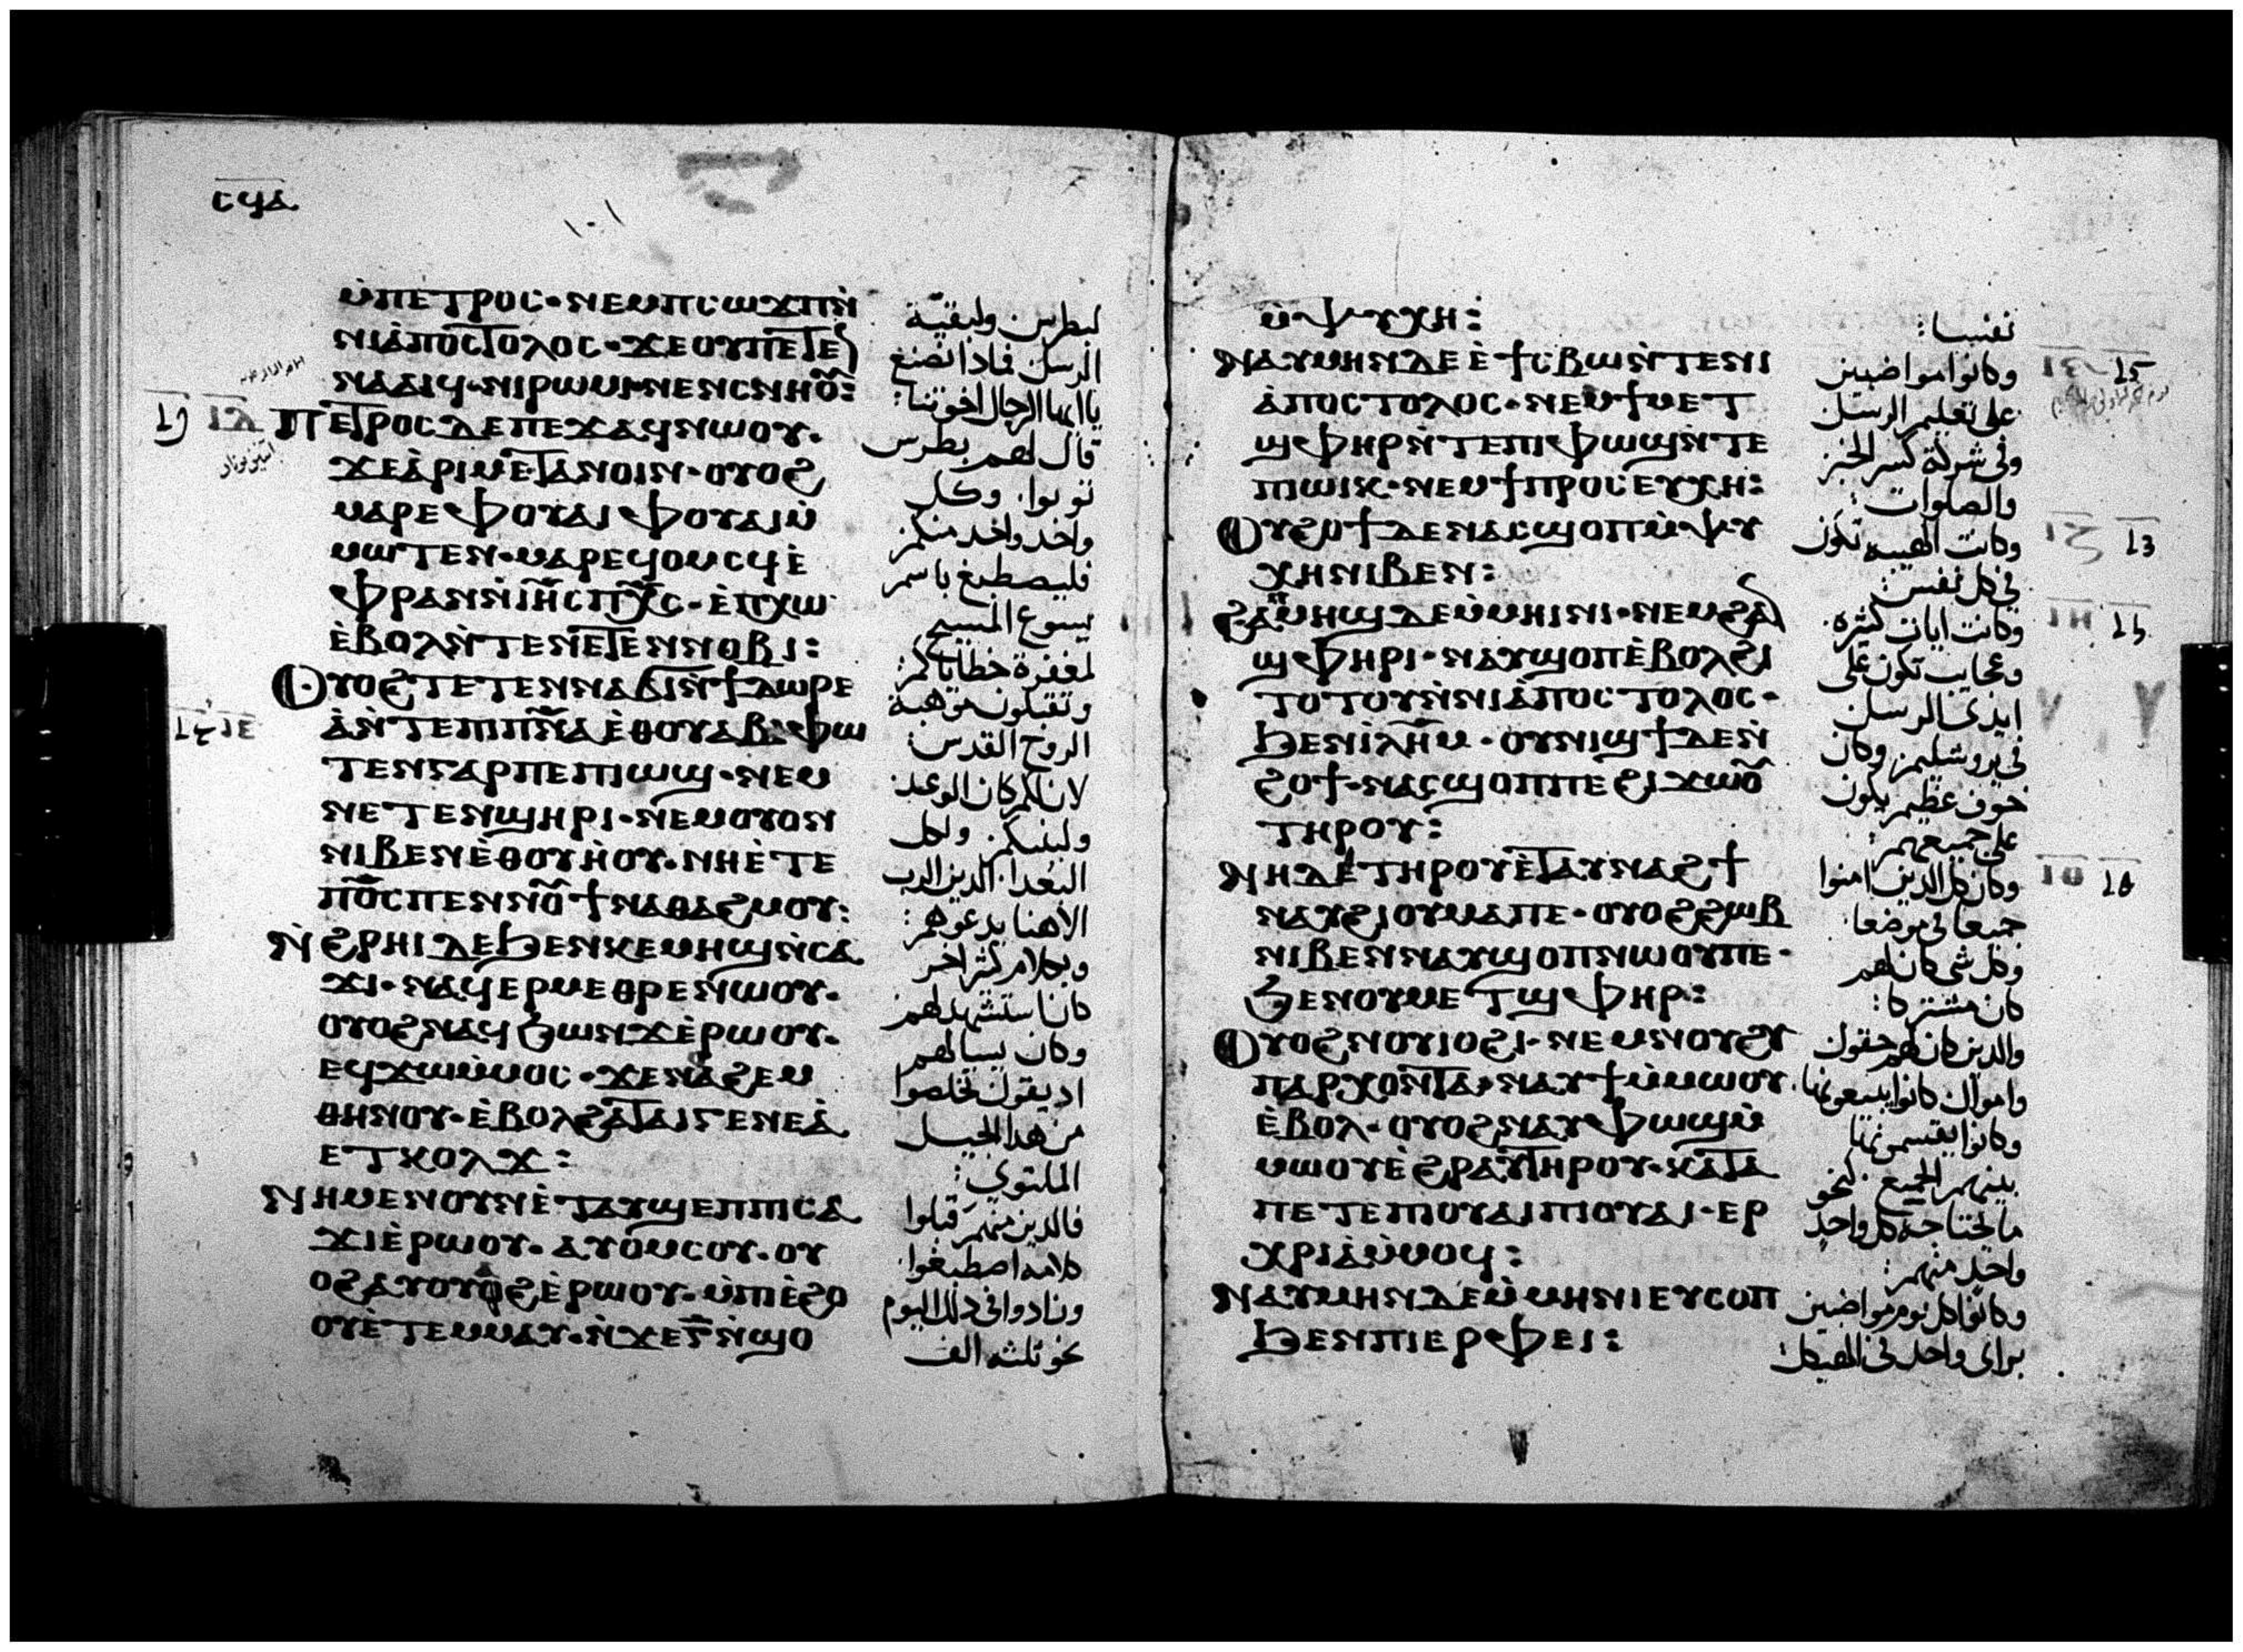 ⲥϥⲁ
١٠١
ⲙ̀ⲡⲉⲧⲣⲟⲥ· ⲛⲉⲙⲡⲥⲱϫⲡⲛ̀
ⲛⲓⲁ̀ⲡⲟⲥⲧⲟⲗⲟⲥ· ϫⲉⲟⲩⲡⲉⲧⲉ
ⲛⲁⲁⲓϥ· ⲛⲓⲣⲱⲙⲓ ⲛⲉⲛⲥⲛⲏⲟⲩ:
ⲡⲉⲧⲣⲟⲥ ⲇⲉ ⲡⲉϫⲁϥ ⲛⲱⲟⲩ·
ϫⲉⲁ̀ⲣⲓⲙⲉⲧⲁⲛⲟⲓⲛ· ⲟⲩⲟϩ
ⲙⲁⲣⲉ ⲫⲟⲩⲁⲓ ⲫⲟⲩⲁⲓ ⲙ̀
ⲙⲱⲧⲉⲛ· ⲙⲁⲣⲉϥⲟⲙⲥϥ ⲉ̀
ⲫⲣⲁⲛ ⲛ̀ⲓⲏ̅ⲥ ⲡⲭ̅ⲥ· ⲉ̀ⲡⲭⲱ
ⲉ̀ⲃⲟⲗ ⲛ̀ⲧⲉ ⲛⲉⲧⲉⲛⲛⲟⲃⲓ:
ⲟⲩⲟϩ ⲧⲉⲧⲉⲛⲛⲁϭⲓ ⲛ̀ϯⲇⲱⲣⲉ
ⲁ̀ ⲛ̀ⲧⲉ ⲡⲓⲡ̅ⲛ̅ⲁ ⲉ̀ⲑⲟⲩⲁⲃ: ⲫⲱ
ⲧⲉⲛ ⲅⲁⲣ ⲡⲉ ⲡⲓⲱϣ· ⲛⲉⲙ
ⲛⲉⲧⲉⲛϣⲏⲣⲓ· ⲛⲉⲙ ⲟⲩⲟⲛ
ⲛⲓⲃⲉⲛ ⲉ̀ⲑⲟⲩⲏ̀ⲟⲩ· ⲛⲏ ⲉ̀ⲧⲉ
ⲡⲟ̅ⲥ ⲡⲉⲛⲛⲟⲩϯ ⲛⲁⲑⲁϩⲙⲟⲩ:
ⲛ̀ϩⲣⲏⲓ ⲇⲉ ϧⲉⲛ ⲕⲉⲙⲏϣ ⲛ̀ⲥⲁ
ϫⲓ· ⲛⲁϥⲉⲣⲙⲉⲑⲣⲉ ⲛⲱⲟⲩ·
ⲟⲩⲟϩ ⲛⲁϥϩⲱⲛϫ ⲉ̀ⲣⲱⲟⲩ·
ⲉϥϫⲱⲙ̀ⲙⲟⲥ· ϫⲉⲛⲁϩⲉⲙ
ⲑⲏⲛⲟⲩ· ⲉ̀ⲃⲟⲗϩⲁ ⲧⲁⲓⲅⲉⲛⲉⲁ̀
ⲉⲧⲕⲟⲗϫ:
ⲛⲏ ⲙⲉⲛ ⲟⲩⲛ ⲉ̀ⲧⲁⲩϣⲉⲡ ⲡⲓⲥⲁ
ϫⲓ ⲉ̀ⲣⲱⲟⲩ· ⲁⲩⲟ̀ⲙⲥⲟⲩ· ⲟⲩ
ⲟϩ ⲁⲩⲟⲩⲁϩ ⲉ̀ⲣⲱⲟⲩ· ⲙ̀ⲡⲓⲉ̀ϩⲟ
ⲟⲩ ⲉ̀ⲧⲉⲙⲙⲁⲩ· ⲛ̀ϫⲉ ⲅ̅ ⲛ̀ϣⲟ
لبطرس ولبقيّة
الرسل فماذا نصنع
ياايها الرجال اخوتنا:
قال لهم بطرس
توبوا· وكل
واحد واحد منكم
فليصطبغ باسم
يسوع المسيح
لمغفرة خطاياكم:
وتقبلون موهبة
الروح القدس:
لان لكم كان الوعد
ولبنيكم· ولكل
البعدا· الذين الرب
الاهنا يدعوهم:
وبكلام كثير اخر
كان يستشهد لهم
وكان يسالهم
اذ يقول تخلصوا
من هذا الجيل
الملتوي:
فالذين منهم قبلوا
كلامه اصطبغوا
وزادوا في ذلك اليوم
نحو ثلثه الف
ⲙ̀ⲯⲩⲭⲏ:
ⲛⲁⲩⲙⲏⲛ ⲇⲉ ⲉ̀ϯⲥⲃⲱ ⲛ̀ⲧⲉ ⲛⲓ
ⲁ̀ⲡⲟⲥⲧⲟⲗⲟⲥ· ⲛⲉⲙ ϯⲙⲉⲧ
ϣⲫⲏⲣ ⲛ̀ⲧⲉ ⲡⲓⲫⲱϣ ⲛ̀ⲧⲉ
ⲡⲓⲱⲓⲕ· ⲛⲉⲙ ϯⲡⲣⲟⲥⲉⲩⲭⲏ:
ⲟⲩϩⲟϯ ⲇⲉ ⲛⲁⲥϣⲟⲡ ⲙ̀ⲯⲩ
ⲭⲏ ⲛⲓⲃⲉⲛ:
ϩⲁⲛⲙⲏϣ ⲇⲉ ⲙ̀ⲙⲏⲓⲛⲓ· ⲛⲉⲙ ϩⲁⲛ
ϣⲫⲏⲣⲓ· ⲛⲁⲩϣⲟⲡ ⲉ̀ⲃⲟⲗϩⲓ
ⲧⲟⲧⲟⲩ ⲛ̀ⲛⲓⲁ̀ⲡⲟⲥⲧⲟⲗⲟⲥ·
ϧⲉⲛ ⲓ̀ⲗⲏ̅ⲙ· ⲟⲩⲛⲓϣϯ ⲇⲉ ⲛ̀
ϩⲟϯ· ⲛⲁⲥϣⲟⲡ ⲡⲉ ϩⲓϫⲱⲟⲩ
ⲧⲏⲣⲟⲩ:
ⲛⲏ ⲇⲉ ⲧⲏⲣⲟⲩ ⲉ̀ⲧⲁⲩⲛⲁϩϯ
ⲛⲁⲩϩⲓ ⲟⲩⲙⲁ ⲡⲉ· ⲟⲩⲟϩ ϩⲱⲃ
ⲛⲓⲃⲉⲛ ⲛⲁⲩϣⲟⲡ ⲛⲱⲟⲩ ⲡⲉ·
ϧⲉⲛ ⲟⲩⲙⲉⲧϣⲫⲏⲣ:
ⲟⲩⲟϩ ⲛⲟⲩⲓⲟϩⲓ· ⲛⲉⲙ ⲛⲟⲩϩⲩ
ⲡⲁⲣⲭⲟⲛⲧⲁ· ⲛⲁⲩϯ ⲙ̀ⲙⲱⲟⲩ
ⲉ̀ⲃⲟⲗ· ⲟⲩⲟϩ ⲛⲁⲩⲫⲱϣ ⲙ̀
ⲙⲱⲟⲩ ⲉ̀ϩⲣⲁⲩ ⲧⲏⲣⲟⲩ· ⲕⲁⲧⲁ
ⲡⲉⲧⲉ ⲡⲓⲟⲩⲁⲓ ⲡⲓⲟⲩⲁⲓ· ⲉⲣ
ⲭⲣⲓⲁ̀ ⲙ̀ⲙⲟϥ:
ⲛⲁⲩⲙⲏⲛ ⲇⲉ ⲙ̀ⲙⲏⲛⲓ ⲉⲩⲥⲟⲡ
ϧⲉⲛ ⲡⲓⲉⲣⲫⲉⲓ:
نفسا:
وكانوا مواضبين
على تعليم الرسل
وفي شركة كسر الخبز
والصلوات:
وكانت الهيبه تكون
في كل نفس:
وكانت ايات كثيره·
وعجايب تكون على
ايدي الرسل
في يروشليم· وكان
خوف عظيم يكون
على جميعهم:
وكان كل الذين امنوا
جميعا في موضعا·
وكل شي كان لهم
كان مشتركا:
والذين كان لهم حقول
واموال كانوا يبيعونها
وكانوا يقسمونها
بينهم الجميع كنحو
ما يحتاجه كل واحد
واحد منهم:
وكانوا كل يوم مواضبين
براي واحد في الهيكل